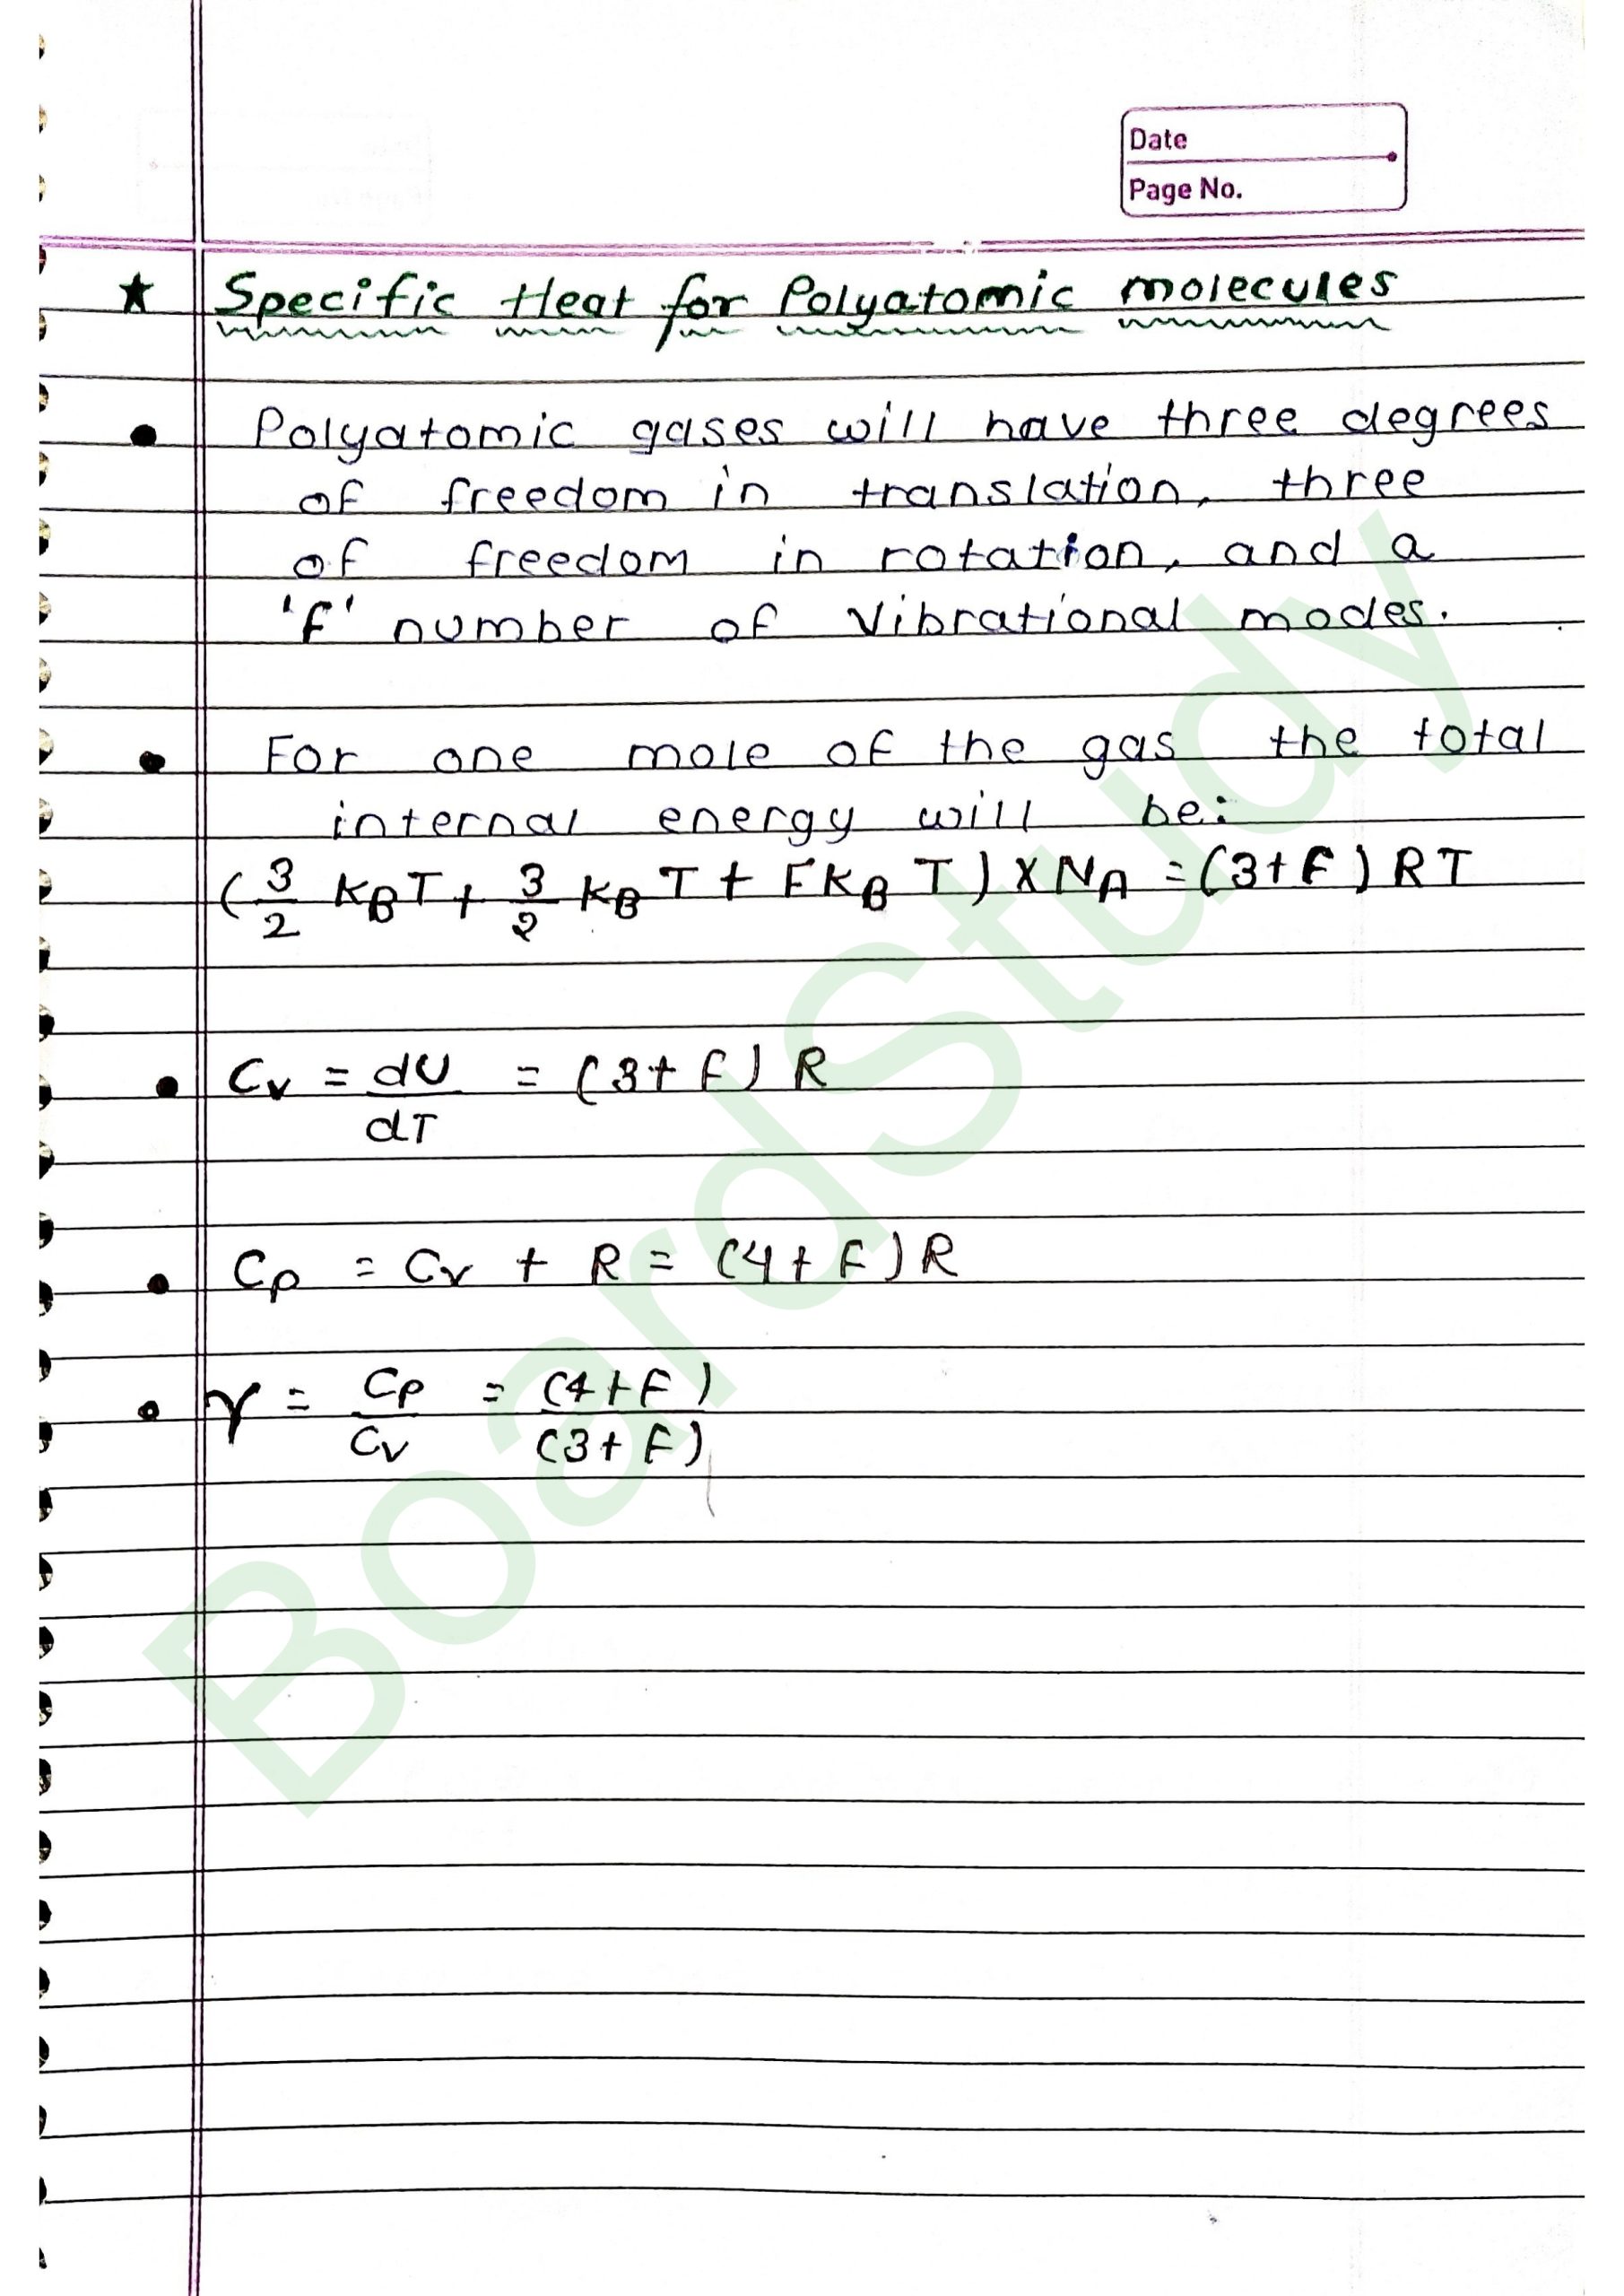 Date
Page No.
★ Specific Heat for Polyatomic molecules
• Polyatomic gases will have three degrees
of freedom in translation, three
of freedom in rotation, and a
'f' number of vibrational modes.
• For one mole of the gas the total
internal energy will be:
(3/2 KBT + 3/2 KB T + FKB T) X NA = (3+F) RT
• Cv = dU/dT = (3+f) R
• Cp = Cv + R = (4+F) R
• γ = Cp/Cv = (4+F)/(3+F)
BoardStudy